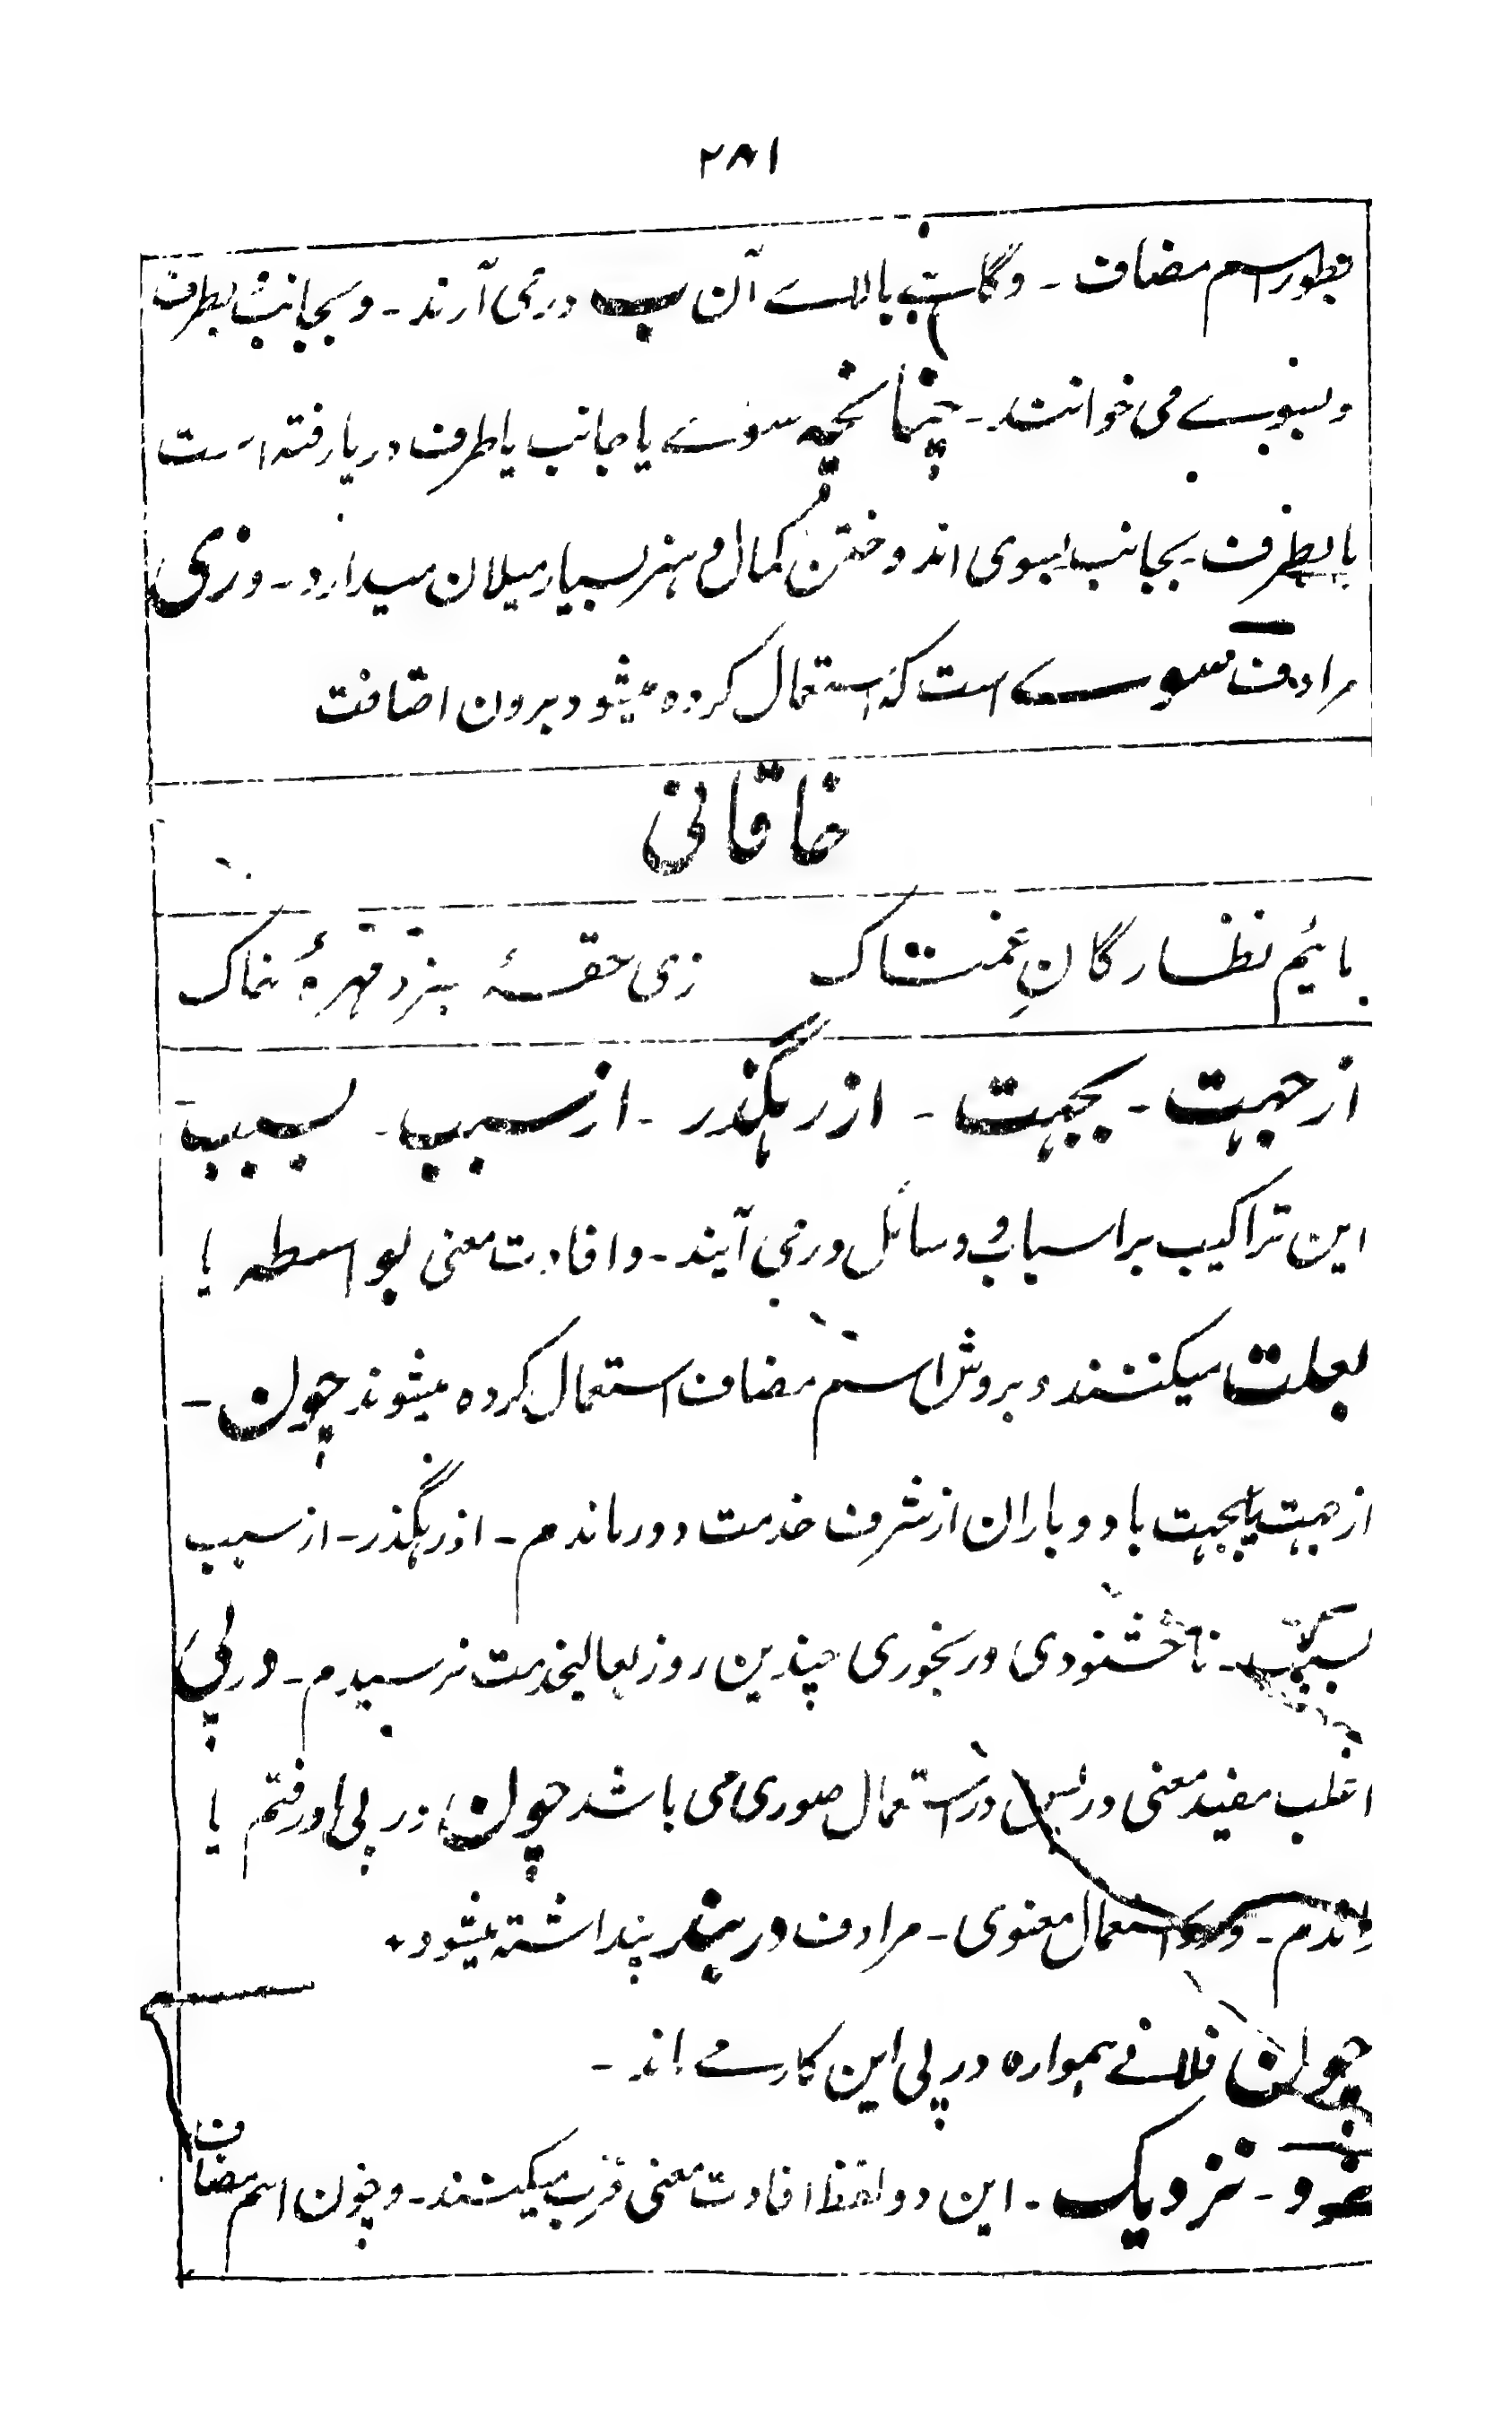 ۲۸۱
بطور اسم مضاف - و گاہے بالاے آن ب در می آرند - و بجانب و بطرف
و بسوے می خوانند - چنانچہ سوے یا جانب یا طرف دریا رفتہ است
یا بطرف بجانب بسوی اندوختن کمال و ہنر بسیار میلان میدارد - و زی
مرادف سوے است کہ استعمال کردہ میشود بدون اضافت
خاقانی
مائیم نظارگانِ غمناک زی حقۂ سبز و مہرۂ خاک
از جہت - بجہت - از رہگذر - از سبب - بسبب
این تراکیب بر اسباب و وسائل در می آیند - و افادت معنی بواسطہ یا
بعلت میکنند و بروش اسم مضاف استعمال کردہ میشوند چون -
از جہت یا بجہت باد و باران از شرف خدمت دور ماندم - از رہگذر - از سبب
بسبب - ناخشنودی و رنجوری چندین روز بعالیخدمت نرسیدم - در پی
اغلب مفید معنی در پس در استعمال صوری می باشد چون در پی او رفتم یا
راندم - و در استعمال معنوی - مرادف در بند پنداشتہ میشود
چون فلانے ہموارہ در پی این کارے اند -
نزد - نزدیک - این دو لفظ افادت معنی قرب میکنند - و چون اسم مضاف